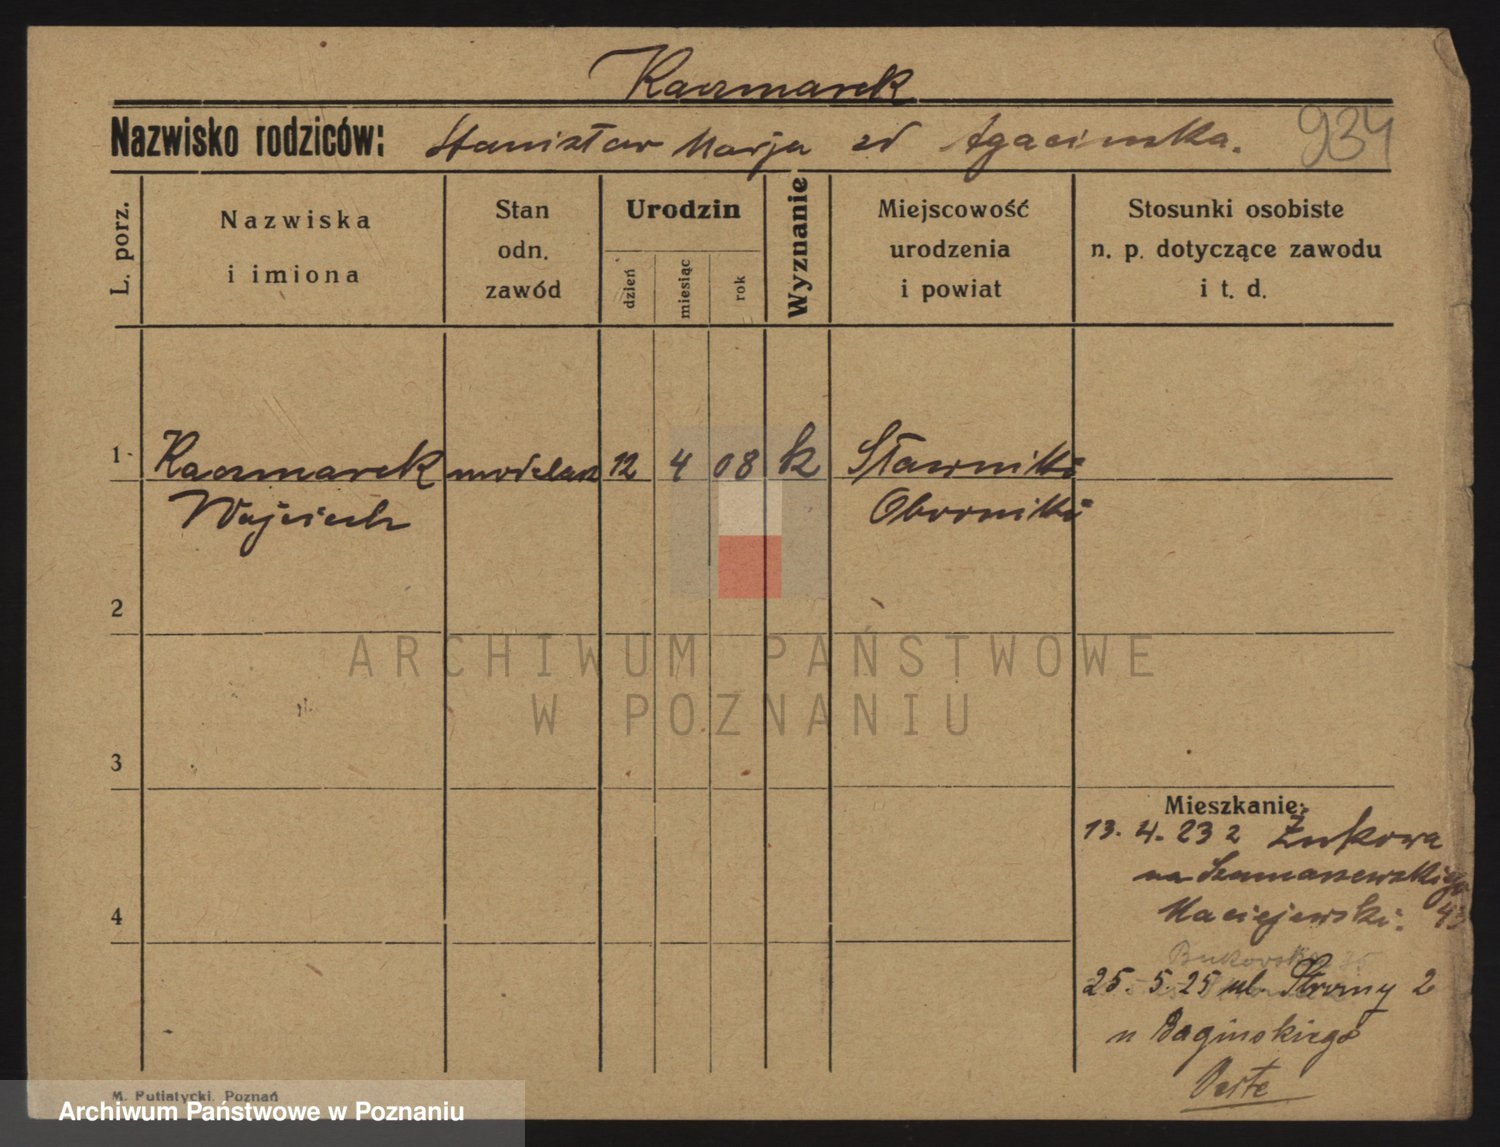 Kaczmarek
Nazwisko rodziców: Stanisław Marja zd Agacinska. 934
L. porz.
Nazwiska
i imiona
Stan
odn.
zawód
Urodzin
dzień
miesiąc
rok
Wyznanie
Miejscowość
urodzenia
i powiat
Stosunki osobiste
n. p. dotyczące zawodu
i t. d.
1 Kaczmarek 12 4 08 k Sławniki
Wojciech Oborniki
2
ARCHIWUM PAŃSTWOWE
W POZNANIU
3
Mieszkanie:
13. 4. 23 z Żukowa
na Szamarzewskiego
Maciejewski. 43
4
Bukowska
25. 5. 25 ul. Stromy 2
u Baginskiego
M. Putiatycki. Poznań
Archiwum Państwowe w Poznaniu